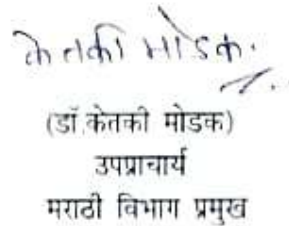 केतकी मोडक.
(डॉ.केतकी मोडक)
उपप्राचार्य
मराठी विभाग प्रमुख